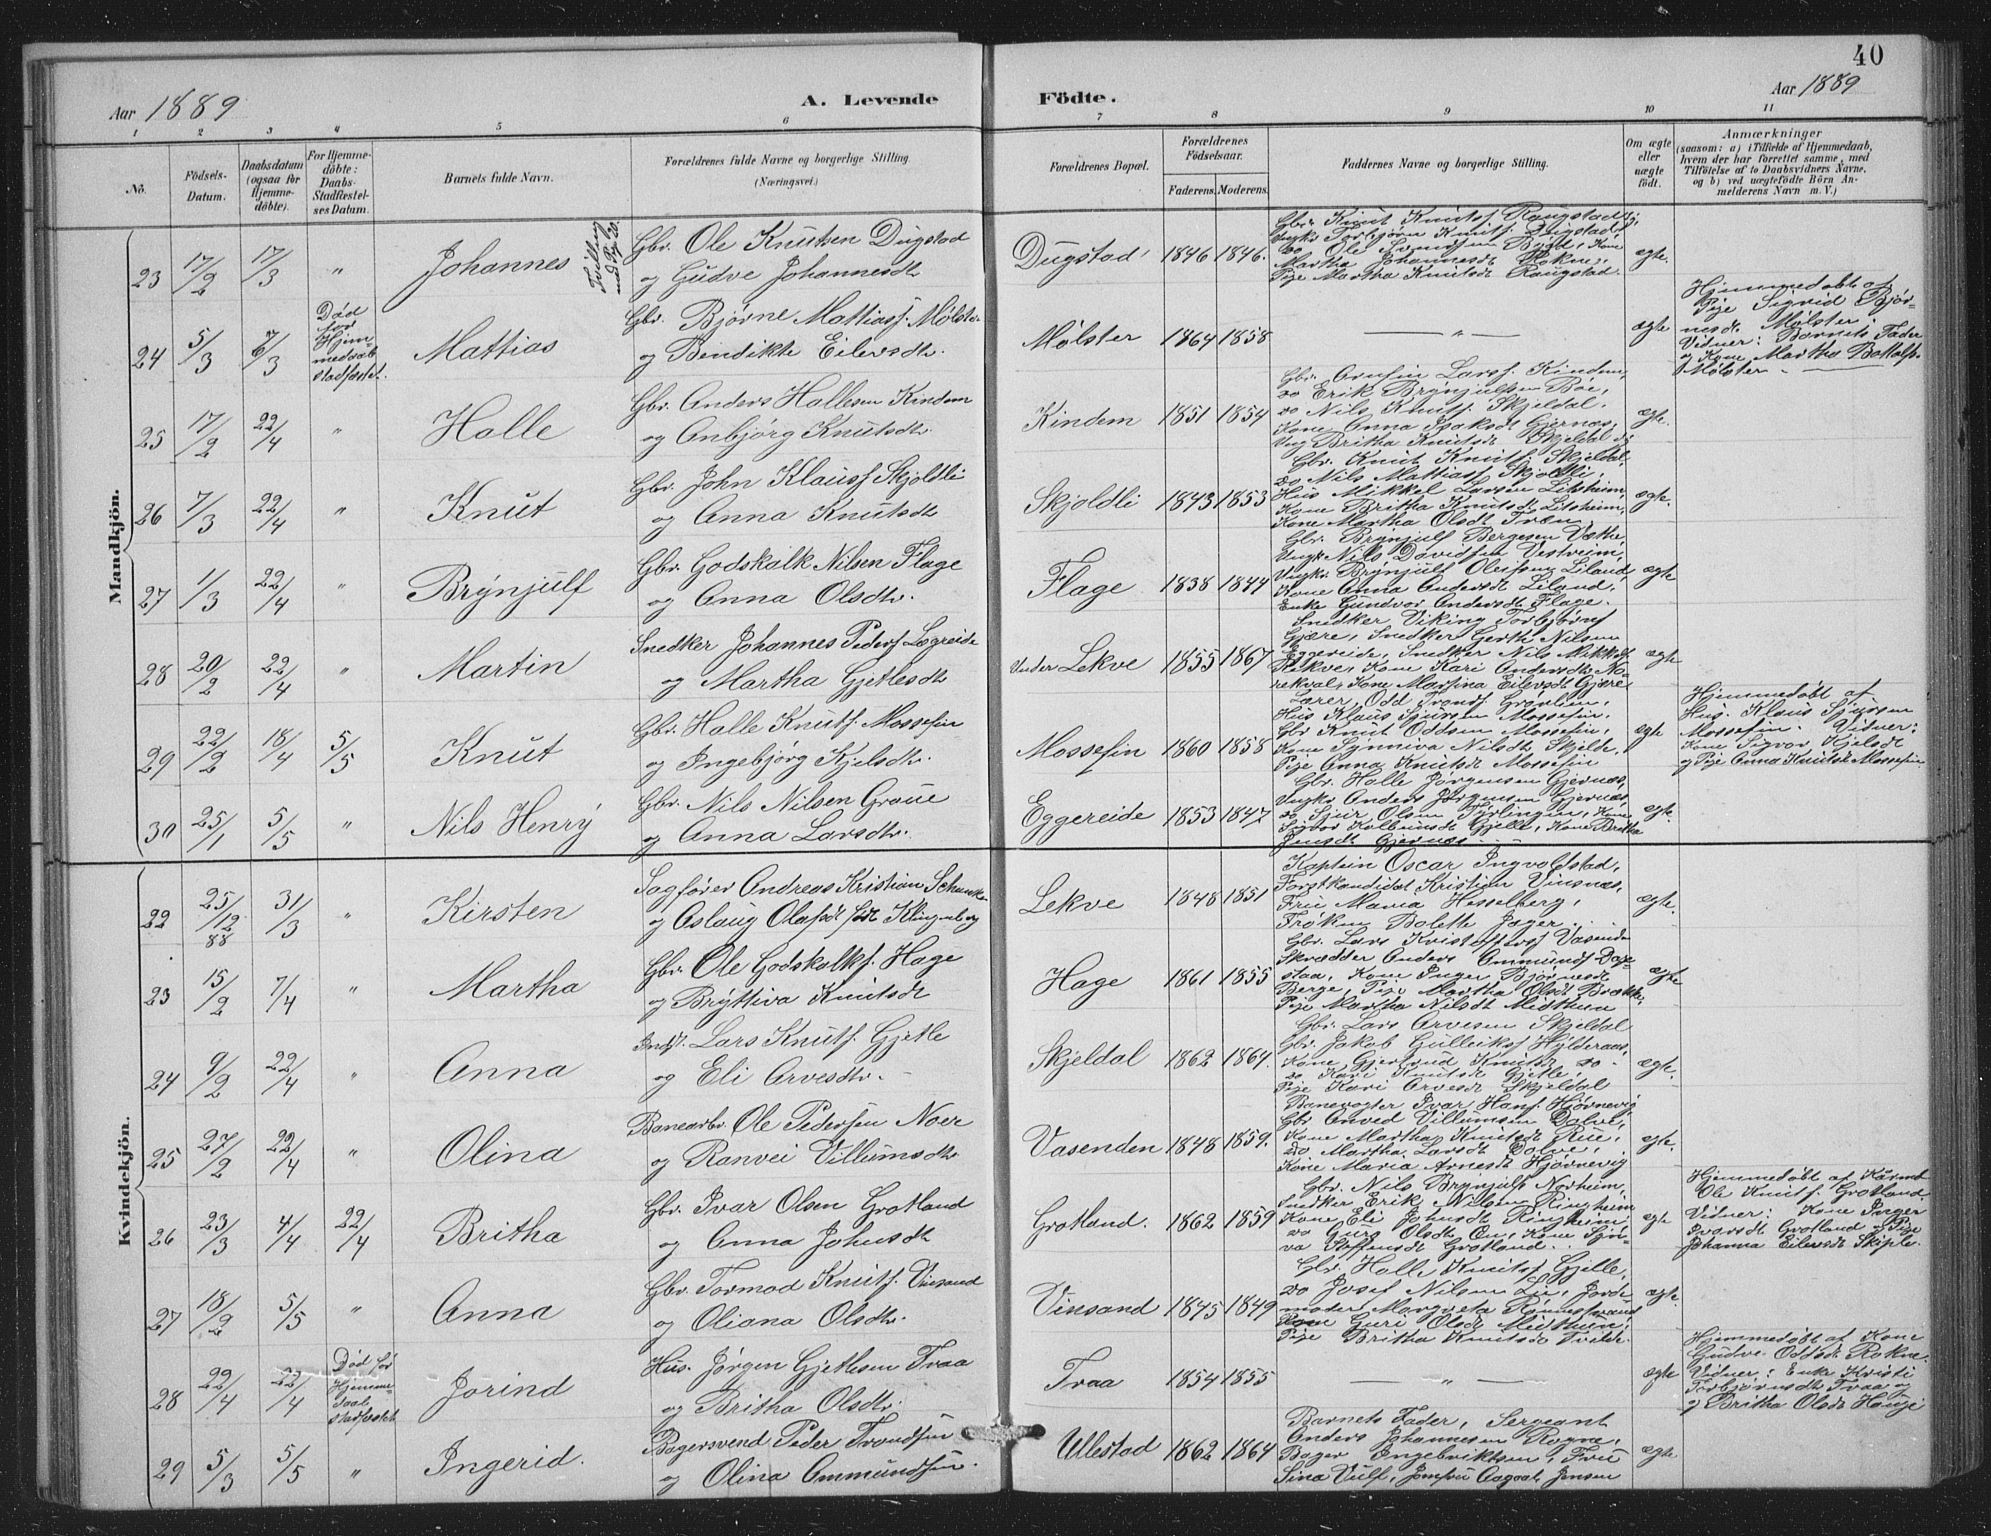 40
Aar 1889
A. Levende
Födte.
Aar 1889
1 2 3 4 5 6 7 8 9 10 11
No.
Födsels-
Datum.
Daabsdatum
(ogsaa for
Hjemme-
döbte).
For Hjemme-
döbte:
Daabs-
Stadfæstel-
ses Datum.
Barnets fulde Navn.
Forældrenes fulde Navne og borgerlige Stilling.
(Næringsvei.)
Forældrenes Bopæl.
Forældrenes
Födselsaar.
Faderens. Moderens.
Faddernes Navne og borgerlige Stilling.
Om ægte
eller
uægte
födt.
Anmærkninger
(saasom: a) i Tilfælde af Hjemmedaab,
hvem der har forrettet samme, med
Tilföielse af to Daabsvidners Navne,
og b) ved uægtefödte Börn An-
melderens Navn m. V.)
Mandkjön.
23 17/2 17/3 " Johannes
Tvilling
Gbr. Ole Knutsen Dugstad
og Gudve Johannesdt
Dugstad 1846 1846.
Gbr. Knut Knutsf. Raugstad
Ungkr Torbjørn Knutsf. Dugstad,
Martha Johannesdt Rokne,
Pige Martha Knutsdt Raugstad.
ægte.
24 5/3 6/3
Død
før
Hjem-
medaab
stadfæstet.
Mattias
Gbr. Bjørne Mattiasf. Mølster
og Bendikte Eilersdtr.
Mølster 1864 1858
— " —
ægte
Hjemmedøbt af
Pige Sigrid Bjør-
nesdt Mølster.
Vidner: Barnets Fader
og Kone Martha Bottolfs-
Mølster
25 17/2 22/4 " Halle
Gbr. Anders Hallesen Kindem
og Anbjørg Knutsdtr.
Kindem 1851 1854
Gbr. Arnfin Larsf. Kindem,
do Erik Brynjulfsen Bøe,
do Nils Knutsf. Skjeldal.
Kone Anna Isaksdt Gjernæs,
Ung Britha Knutsdt Skjeldal
ægte.
26 7/3 22/4 " Knut
Gbr. John Klausf. Skjoldli
og Anna Knutsdt
Skjoldli 1843 1853
Gbr. Knut Knutsf. Skjeldal,
do Nils Mattiasf Skjoldli,
Hus Mikkel Larsen Litsheim,
Kone Britha Knutsdt Litsheim,
Kone Martha Olsdt Tvern
ægte.
27 1/3 22/4 " Brynjulf
Gbr. Godskalk Nilsen Flage
og Anna Olsdtr.
Flage 1838 1844
Gbr. Brynjulf Bergesen Væthe,
Ungk Nils Davidsen Vestreim,
Ungkr. Brynjulf Oleifsen Liland,
Kone Anna Andersdt Liland,
Enke Gundvor Andersdt Flage.
ægte
28 20/2 22/4 " Martin
Snedker Johannes Pedersf Løgreide
og Martha Gjetlesdtr
Under Lekve 1855 1867
Snedker Viking Torbjørnsf
Gjære, Snedker Gerth Nilsen
Eggereide, Snedker Nils Mikkelsf
Lekve, Kone Kari Andersdt No-
rekval, Kone Marsina Eilevsdt Gjære
ægte
29 22/2 18/4 5/5 Knut
Gbr. Halle Knutsf. Mossefin
og Ingebjørg Kjelsdtr.
Mossefin 1860 1858
Lærer, Odd Trondsf. Grovlien,
Hus Klaus Sjursen Mossefin.
Gbr Knut Oddsen Mossefin,
Kone Synniva Nilsdt Skjelde,
Pige Anna Knutsdt Mossefin
ægte
Hjemmedøbt af
Hus. Klaus Sjursen
Mossefin. Vidner:
Kone Sigvor Kjelsdt
og Pige Anna Knutsdt Mossefin
30 25/1 5/5 " Nils Henry
Gbr. Nils Nilsen Groue
og Anna Larsdtr.
Eggereide 1853 1847
Gbr. Halle Jørgensen Gjernæs,
Ungkr Anders Jørgensen Gjernæs,
do Sjur Olsen Tyrlingen, Kone
Sigvor Kolbeinsdt Gjelle, Kone Britha
Jensdt Gjernæs
ægte.
Kvindekjön.
22 25/12 88 31/3 " Kirsten
Sagfører Andreas Kristian Schanke
og Aslaug Olafsdt født Klingenberg
Lekve 1848 1851
Kaptein Oscar Ingvaldstad,
Forstkandidat Kristian Vinsnæs,
Frue Maria Hesselberg,
Frøken Bolette Jager
ægte.
23 15/2 7/4 " Martha
Gbr. Ole Godskalksf. Hage
og Bryttiva Knutsdt
Hage 1861 1855
Gbr. Lars Kristoffersf Vasende
Skrædder Anders Ommundsf Dag-
staa, Kone Inger Bjørnesdt
Berge, Pige Martha Olsdt Brække
Pige Martha Nilsdt Midthun
ægte
24 9/2 22/4 " Anna
Inds. Lars Knutsf. Gjetle
og Eli Arvesdtr.
Skjeldal 1862 1864.
Gbr. Lars Arvesen Skjeldal
Gbr. Jakob Gulleiksf Hylderaas,
Kone Gjertrud Knutsdt do
do Kari Knutsdt Gjetle,
Pige Kari Arvesdt Skjeldal
ægte.
25 27/2 22/4 " Olina
Banearbr. Ole Pedersen Noer
og Ranvei Villumsdtr
Vasenden 1848 1859.
Banevogter Ivar Hansf. Hjørnevig
Gbr Anved Villumsen Dolve,
Kone Martha Knutsdt Rue,
do Martha Larsdt Dolve,
Kone Maria Arnesdt Hjørnevig
ægte.
26 23/3 4/4 22/4 Britha
Gbr. Ivar Olsen Grotland
og Anna Johnsdt
Grotland. 1862 1859
Gbr. Nils Brynjulfs Nørheim,
Snedker Erik Nilsen Ringheim
Kone Eli Johnsdt Ringheim,
do Guro Olsdt En, Kone Syn-
va Steffensdt Grotland.
ægte
Hjemmedøbt af Kårmd
Ole Knutsf. Grotland
Vidner: Kone Inger
Ivarsdt Grotland og Pige
Johanna Eilevsdt Skiple.
27 18/2 5/5 " Anna
Gbr. Tormod Knutsf. Vinsand
og Oliana Olsdtr.
Vinsand 1845 1849
Gbr. Halle Knutsf Gjelle,
do Josef Nilsen Lie, Jorde-
moder Margreta Rønnestrand
Kone Guri Olsdt Midthun,
Pige Britha Knutsdt Tvilde.
ægte.
28 22/4 22/4
Død før
Hjemme-
daab
stadfæstet
Jorind
Hus. Jørgen Gjetlesen Traa
og Britha Olsdtr.
Traa 1854 1855
— " —
ægte
Hjemmedøbt af Kone
Gudve Oddsdt Rokne.
Vidner: Enke Kristi
Torbjørnsdt Traa og
og Britha Olsdt Hauge
29 5/3 5/5 " Ingerid.
Bagersvend Peder Trondsen
og Olina Ommundsen.
Ullestad 1862 1864
Barnets Fader, Sergeant
Anders Johannesen Rogne,
Bager Ingebriktsen, Fru
Sina Vulf, Jomfru Aagaat Jensen
ægte.